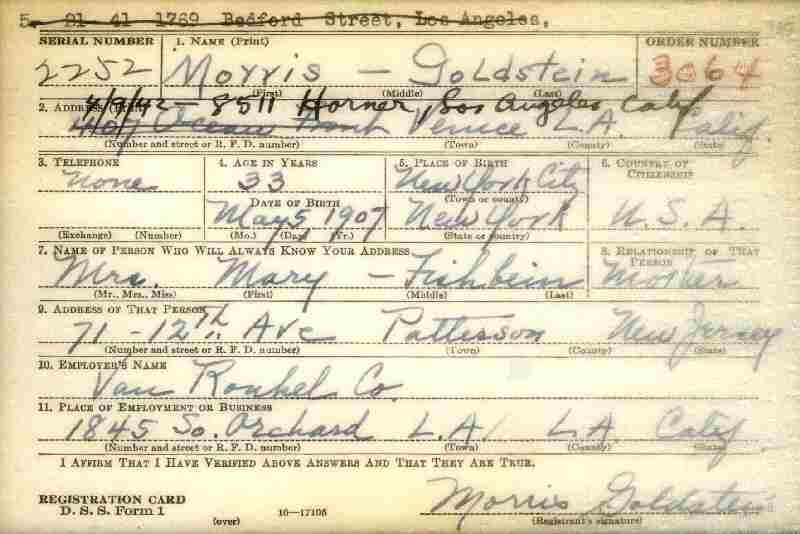 5 21 41 1769 Bedford Street, Los Angeles,
SERIAL NUMBER 1. NAME (Print) ORDER NUMBER
2252 Morris — Goldstein 3064
(First) (Middle) (Last)
4/7/42 – 8511 Horner, Los Angeles, Calif
2. ADDRESS
Ocean Front Venice L.A. Calif.
(Number and street or R. F. D. number) (Town) (County) (State)
3. TELEPHONE 4. AGE IN YEARS 5. PLACE OF BIRTH 6. COUNTRY OF CITIZENSHIP
None 33 New York City
(Town or county)
DATE OF BIRTH
May 5 1907 New York U. S. A.
(Exchange) (Number) (Mo.) (Day) (Yr.) (State or country)
7. NAME OF PERSON WHO WILL ALWAYS KNOW YOUR ADDRESS 8. RELATIONSHIP OF THAT PERSON
Mrs. Mary — Fishbein Mother
(Mr., Mrs., Miss) (First) (Middle) (Last)
9. ADDRESS OF THAT PERSON
71 - 12th Ave Patterson New Jersey
(Number and street or R. F. D. number) (Town) (County) (State)
10. EMPLOYER'S NAME
Co.
11. PLACE OF EMPLOYMENT OR BUSINESS
1845 So. Orchard L.A. L.A. Calif
(Number and street or R. F. D. number) (Town) (County) (State)
I AFFIRM THAT I HAVE VERIFIED ABOVE ANSWERS AND THAT THEY ARE TRUE.
REGISTRATION CARD
D. S. S. Form 1 (over) 16—17105 Morris Goldstein
(Registrant's signature)